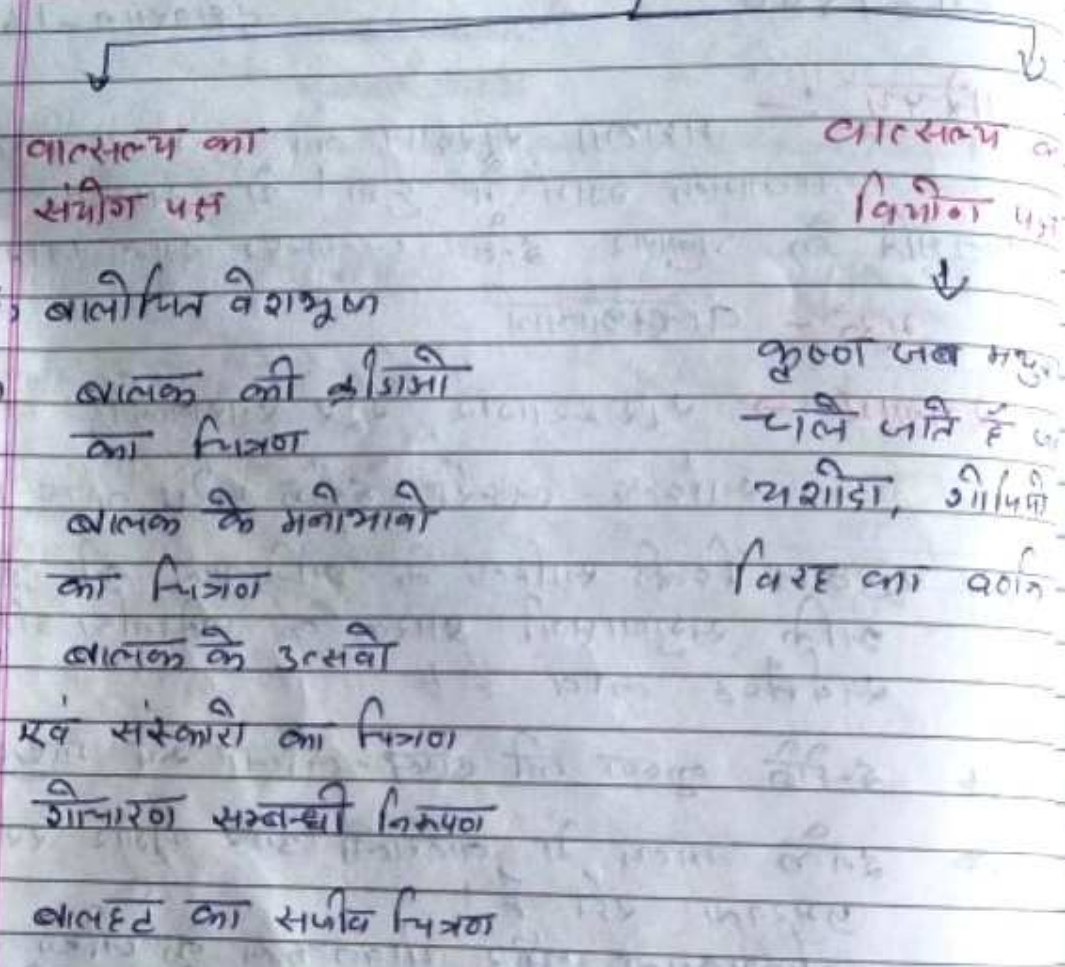 वात्सल्य का
संयोग पक्ष
बालोचित वेशभूषा
बालक की क्रीडाओ
का चित्रण
बालक के मनोभावो
का चित्रण
बालक के उत्सवो
एवं संस्कारो का चित्रण
गोचारण सम्बन्धी निरूपण
बालहट का सजीव चित्रण
वात्सल्य
वियोग
कृष्ण जब
चले जाते हैं
यशोदा, गोपियो
विरह का वर्णन